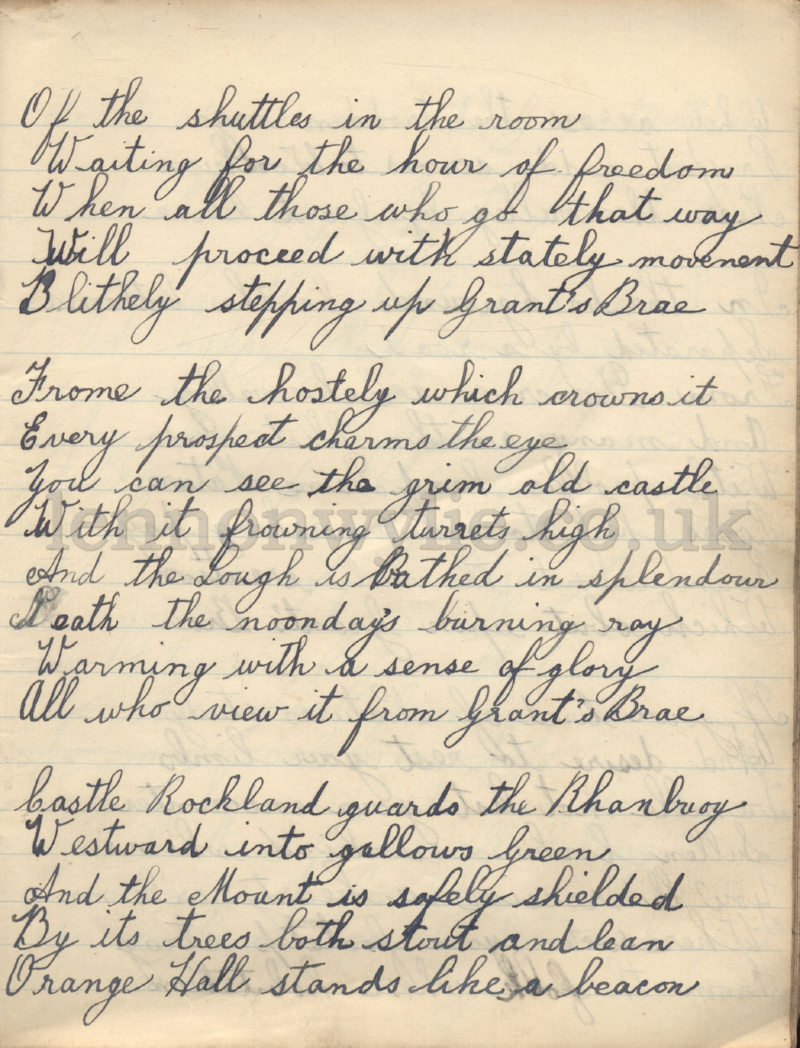 Of the shuttles in the room
Waiting for the hour of freedom
When all those who go that way
Will proceed with stately movement
Blithely stepping up Grant's Brae
Frome the hostely which crowns it
Every prospect charms the eye
You can see the grim old castle
With it frowning turrets high
And the Lough is Bathed in splendour
Neath the noonday's burning ray
Warming with a sense of glory
All who view it from Grant's Brae
Castle Rockland guards the Rhanbuoy
Westward into gallows Green
And the Mount is safely shielded
By its trees both stout and lean
Orange Hall stands like a beacon